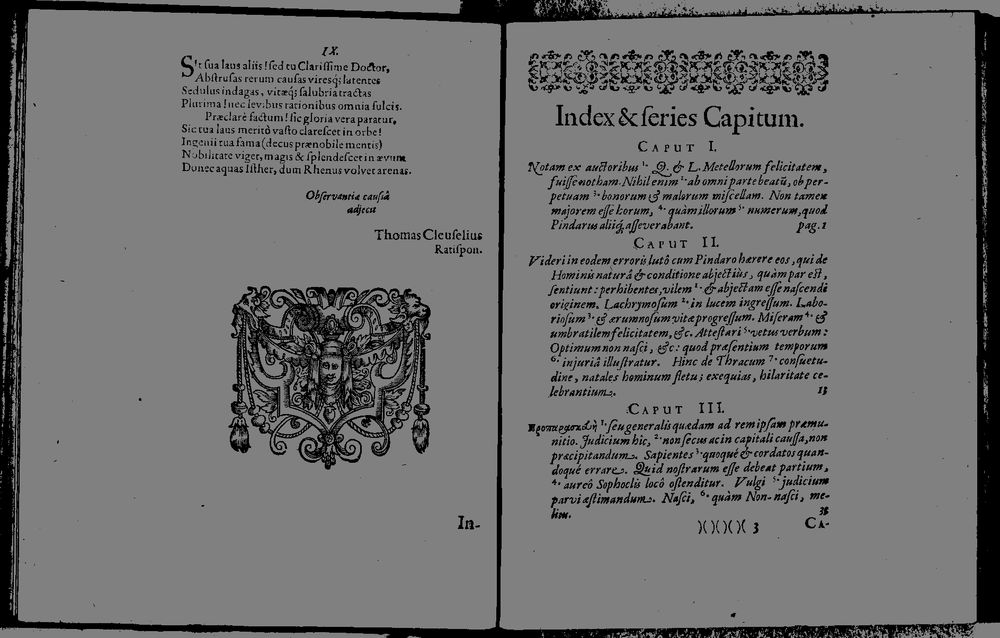 IX.
Sit sua laus aliis! sed tu Clarissime Doctor,
Abstrusas rerum causas viresq; latentes
Sedulus indagas, vitæq; salubria tractas
Plurima! nec levibus rationibus omnia fulcis.
Præclarè factum! sic gloria vera paratur,
Sic tua laus meritò vasto clarescet in orbe!
Ingenii tua fama (decus prænobile mentis)
Nobilitate viget, magis & splendescet in ævum
Donec aquas Isther, dum Rhenus volvet arenas.
Observantiæ causâ
adjecit
Thomas Cleuselius
Ratispon.
In-
Index & series Capitum.
CAPUT I.
Notam ex auctoribus 1. Q. & L. Metellorum felicitatem,
fuisse notham. Nihil enim 2. ab omni parte beatū, ob per-
petuam 3. bonorum & malorum miscellam. Non tamen
majorem esse horum, 4. quàm illorum 5. numerum, quod
Pindarus aliiq; asseverabant. pag. 1
CAPUT II.
Videri in eodem erroris lutô cum Pindaro hærere eos, qui de
Hominis naturâ & conditione abjectiùs, quàm par est,
sentiunt: perhibentes, vilem 1. & abjectam esse nascendi
originem. Lachrymosum 2. in lucem ingressum. Labo-
riosum 3. & ærumnosum vitæ progressum. Miseram 4. &
umbratilem felicitatem, &c. Attestari 5. vetus verbum:
Optimum non nasci, &c: quod præsentium temporum
6. injuriâ illustratur. Hinc de Thracum 7. consuetu-
dine, natales hominum fletu; exequias, hilaritate ce-
lebrantium. 13
CAPUT III.
1. seu generalis quædam ad rem ipsam præmu-
nitio. Judicium hîc, 2. non secus ac in capitali caussa, non
præcipitandum. Sapientes 3. quoqué & cordatos quan-
doqué errare. Quid nostrarum esse debeat partium,
4. aureô Sophoclis locô ostenditur. Vulgi 5. judicium
parvi æstimandum. Nasci, 6. quàm Non-nasci, me-
lius. 38
)()()()( 3 CA-